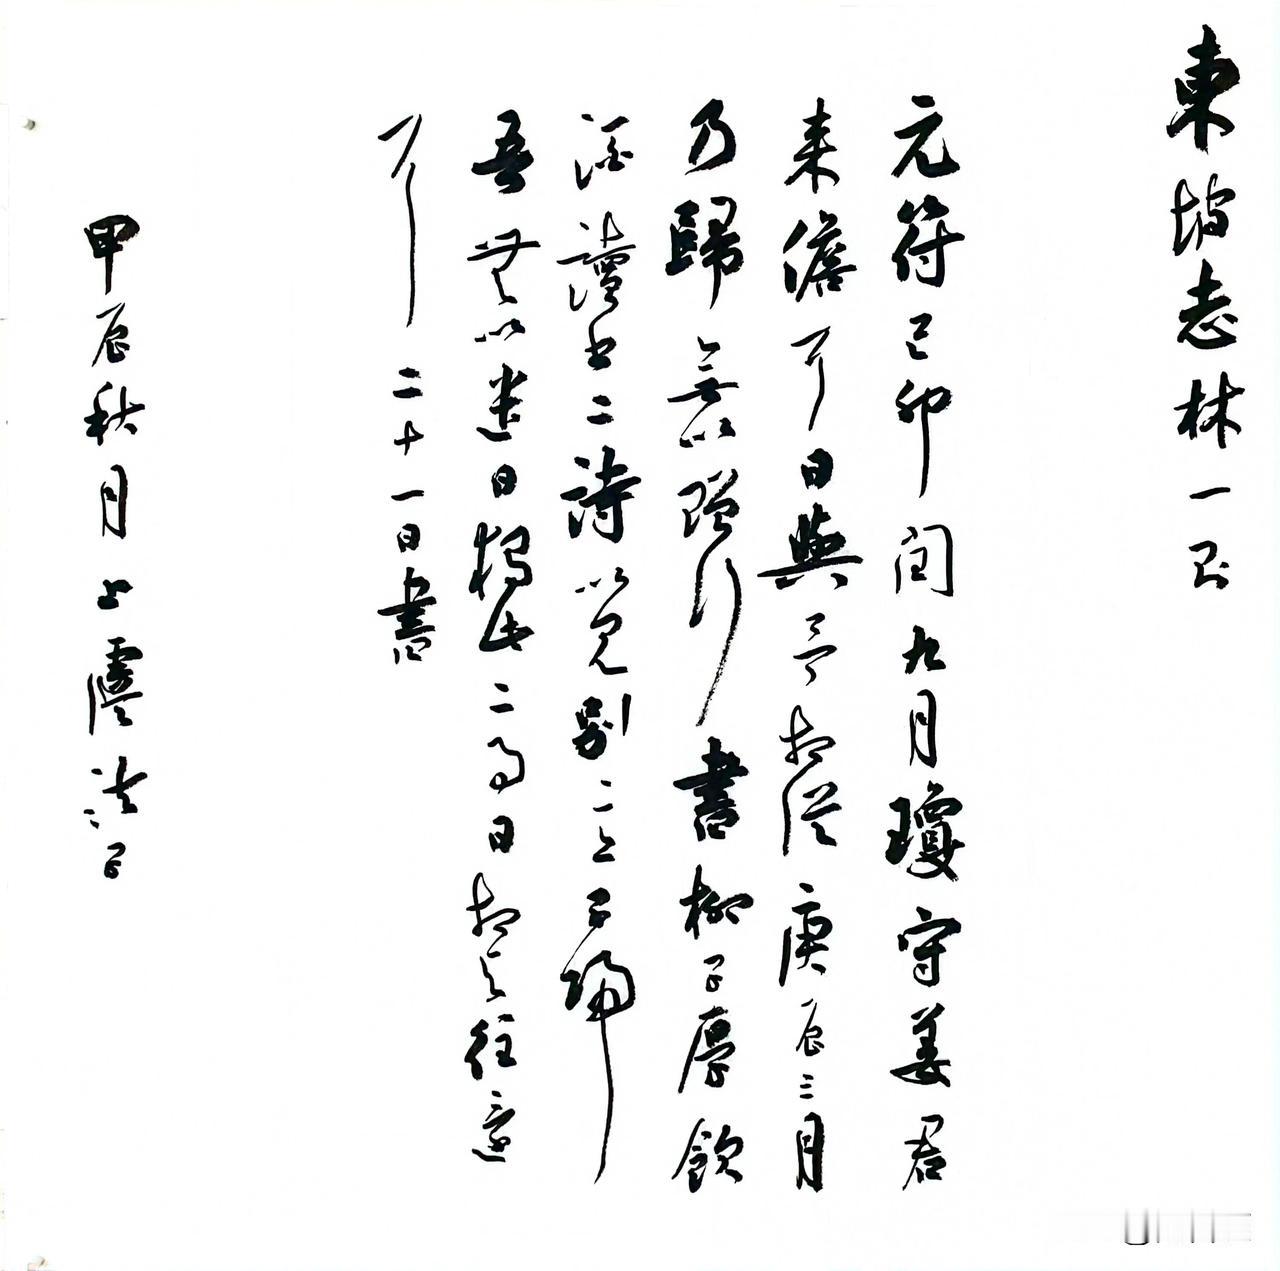 東坡志林一則
元符己卯閏九月瓊守姜君
来儋耳日與予相從庚辰三月
乃歸無以贈行書柳子厚飲
酒讀書二詩以見別意子歸
吾無以遣日獨此二事日相與往還
耳二十一日書
甲辰秋月上虞